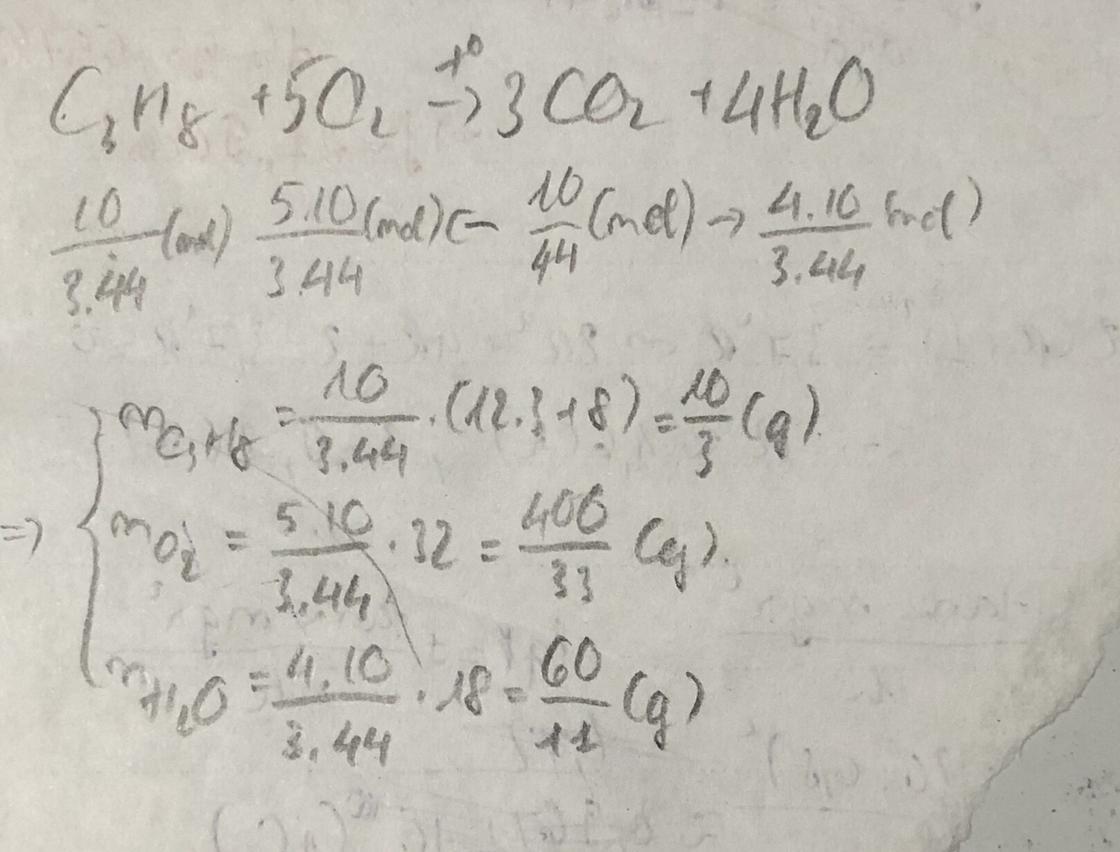 C₃H₈ + 5O₂ →(t⁰) 3CO₂ + 4H₂O
10/3.44 (mol) 5.10/3.44 (mol) ← 10/44 (mol) → 4.10/3.44 (mol)
m C₃H₈ = 10/3.44 . (12.3+8) = 10/3 (g).
=> { m O₂ = 5.10/3.44 . 32 = 400/33 (g).
m H₂O = 4.10/3.44 . 18 = 60/11 (g)